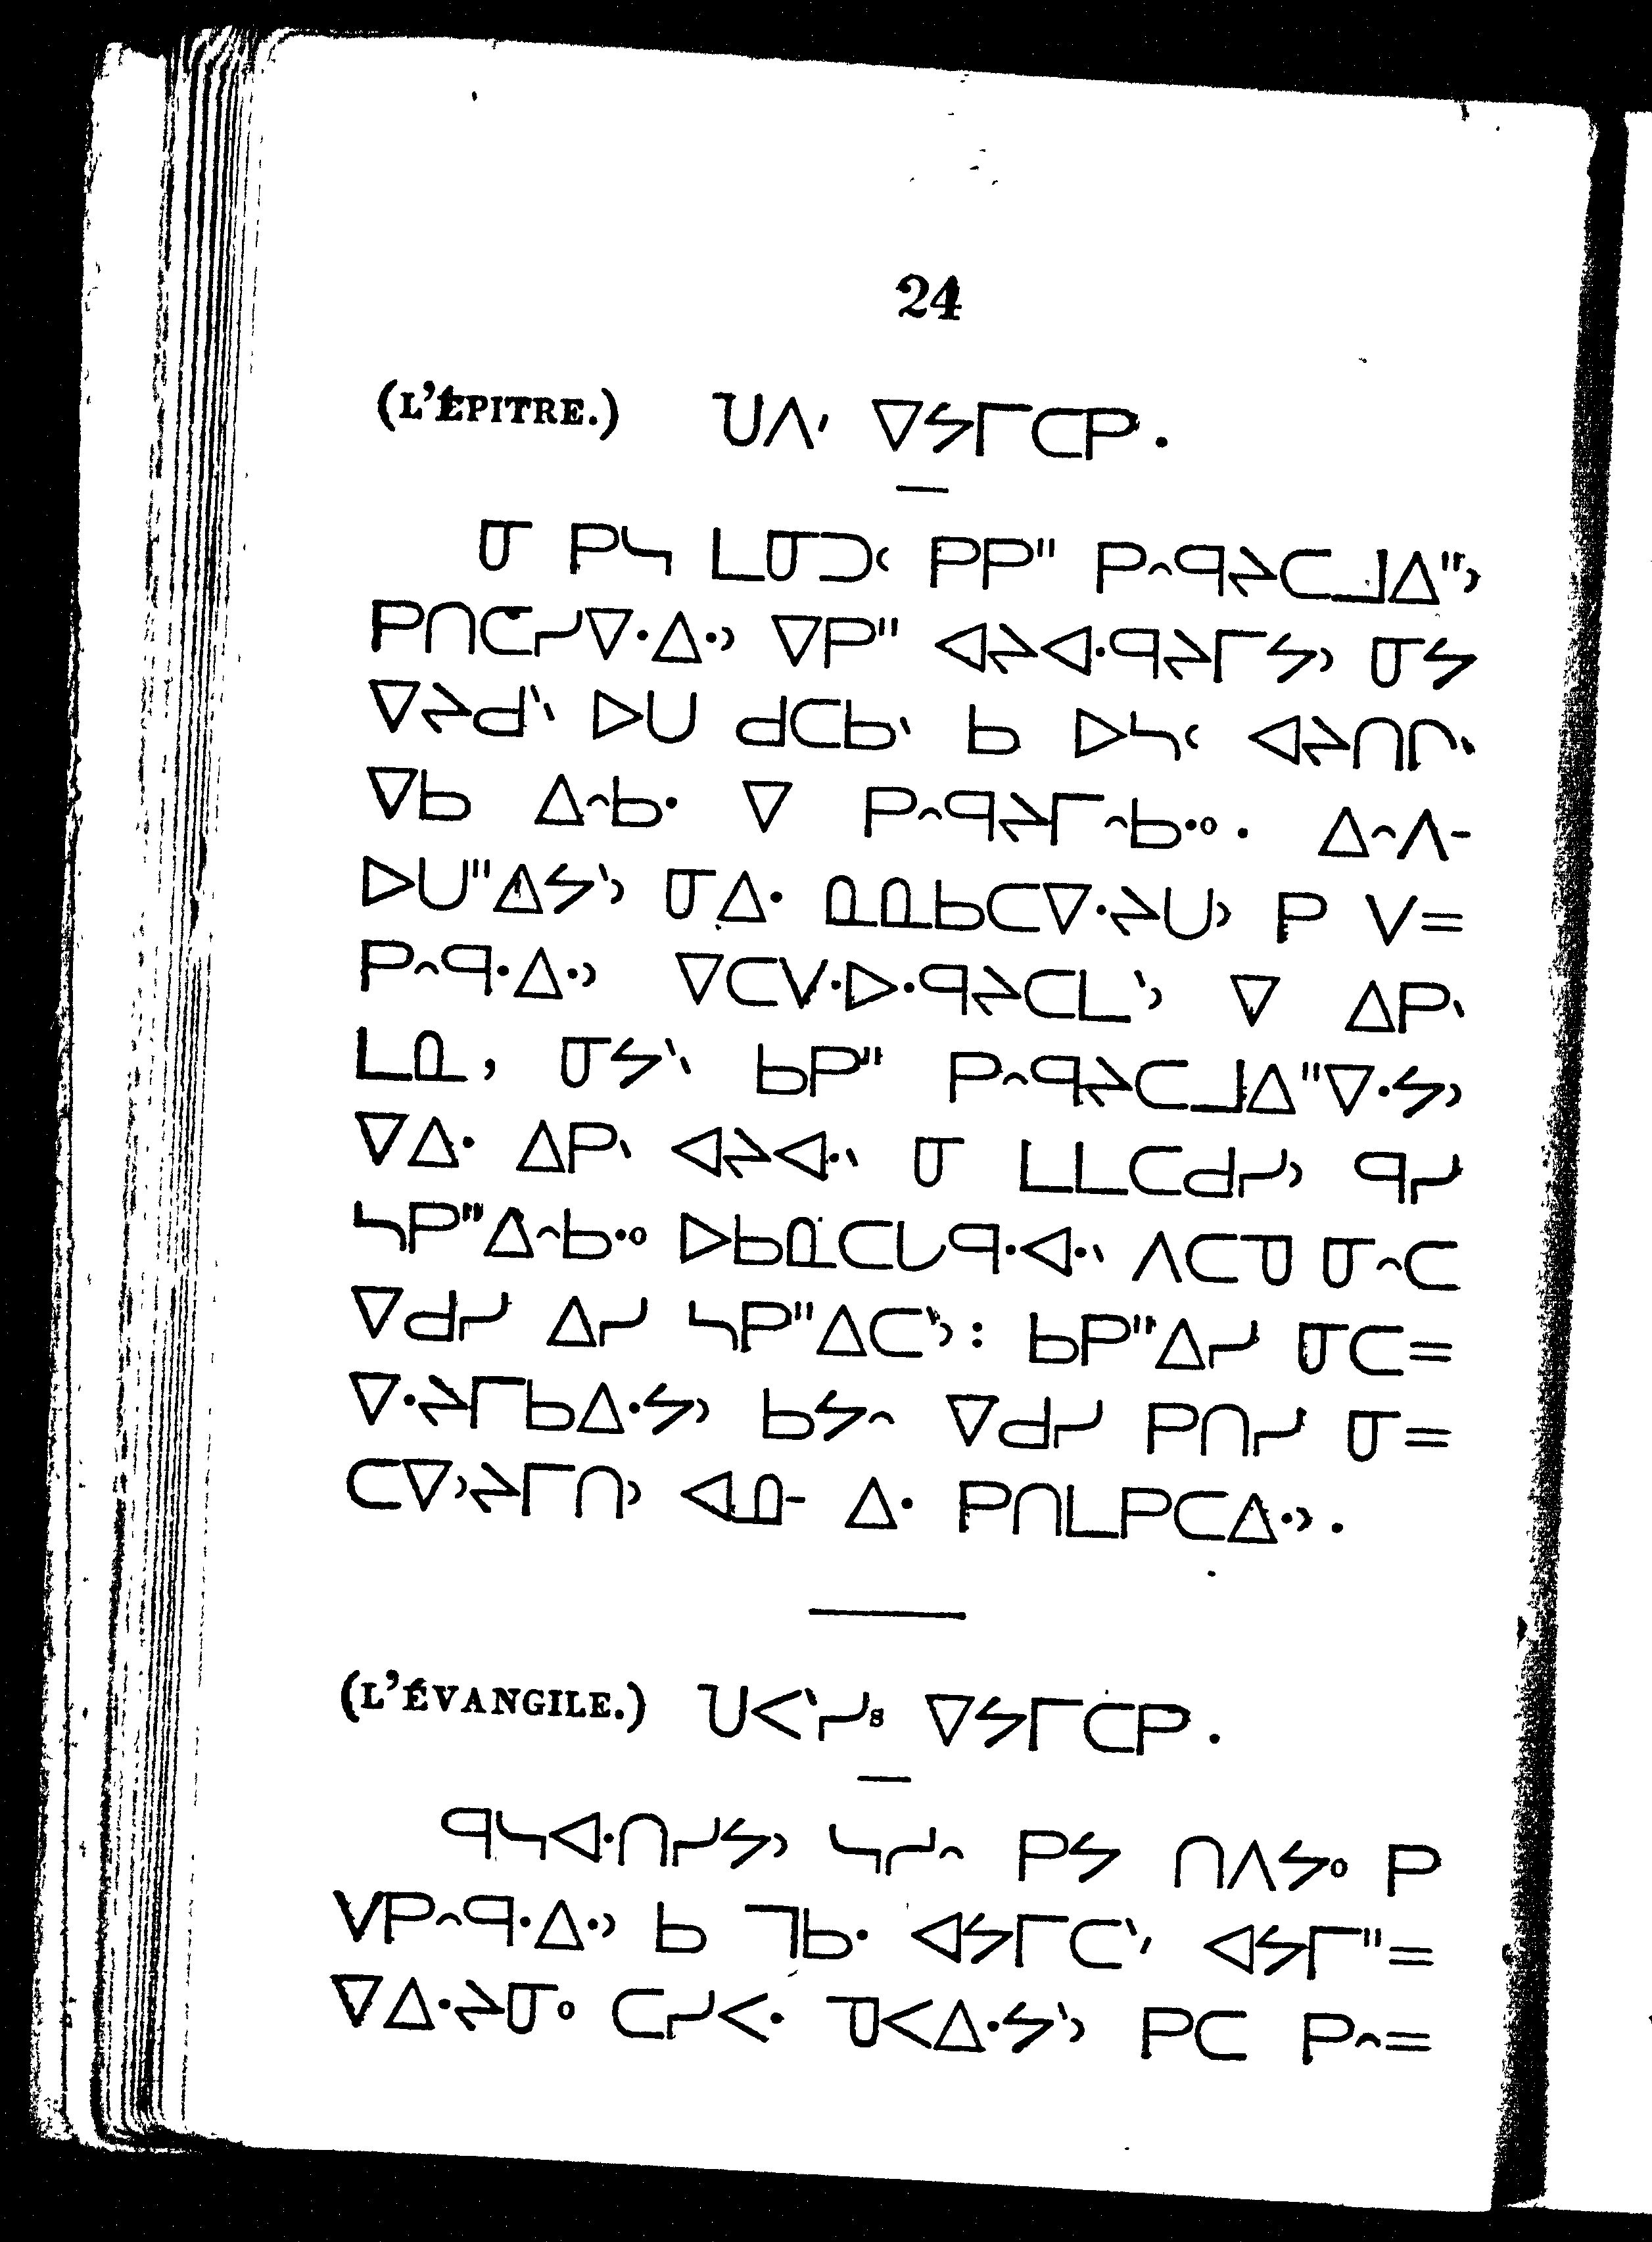 24
(L'ÉPITRE.) ᓓᐱᐟ ᐁᔭᒥᑕᑭ.
ᓂ ᑭᓴ ᒪᓂᑐᑊ ᑭᑭᐦ ᑭᐢᑫᔨᑕᒧᐃᐦᐣ
ᑭᑎᑖᓯᐁᐧᐃᐧᐣ ᐁᑭᐦ ᐊᔨᐊᐧᑫᔨᒥᔭᐣ ᓂᔭ
ᐁᔨᑯᐠᐠ ᐅᑌ ᑯᑕᑲᐠ ᑲ ᐅᓴᑊ ᐊᔨᑎᒋᐠ
ᐁᑲ ᐃᐢᑲᐧ ᐁ ᑭᐢᑫᔨᒥᐢᑲᐧᐤ. ᐃᐢᐱᐨ
ᐅᑌᐦᐃᔭᐠᐣ ᓂᐃᐧ ᓇᓇᑲᑕᐁᐧᔨᑌᐣ ᑭ ᐯ=
ᑭᐢᑫᐧᐃᐧᐣ ᐁᑕᐯᐧᐅᐧᑫᔨᑕᒪᐠᐣ ᐁ ᐃᑭᐠ
ᒪᓇ, ᓂᔭᐠᐠ ᑲᑭᐦ ᑭᐢᑫᔨᑕᒧᐃᐦᐁᐧᔭᐣ
ᐁᐃᐧ ᐃᑭᐠ ᐊᔨᐊᐧᐠ ᓂ ᒪᒪᑕᑯᓯᐣ ᑫᓯ
ᓴᑭᐦᐃᐢᑲᐧᐤ ᐅᑲᓇᑕᒐᑫᐧᐊᐧᐠ ᐱᑕᓀ ᓂᐢᑕ
ᐁᑯᓯ ᐃᓯ ᓴᑭᐦᐃᑕᐠᐣ: ᑲᑭᐦᐃᓯ ᓂᑕ=
ᐁᐧᔨᒥᑲᐃᐧᔭᐣ ᑲᔭᐢ ᐁᑯᓯ ᑭᑎᓯ ᓂ=
ᑕᐁᐣᔨᒥᑎᐣ ᐊᓄᐨ ᐃᐧ ᑭᑎᒪᑭᑕᐃᐧᐣ.
(L'ÉVANGILE.) ᓓᐸᐠᓯs ᐁᔭᒥᑕᑭ.
ᑫᓴᐊᐧᑎᓯᔭᐣ ᓴᓯᐢ ᑭᔭ ᑎᐱᔭᐤ ᑭ
ᐯᑭᐢᑫᐧᐃᐧᐣ ᑲ ᒣᑲᐧ ᐊᔭᒥᑕᐠᐟ ᐊᔭᒥᐦ=
ᐁᐃᐧᔨᓂᐤ ᑕᓯᐸᐧ ᓀᐸᐃᐧᔭᐠᐣ ᑭᑕ ᑭᐢ=